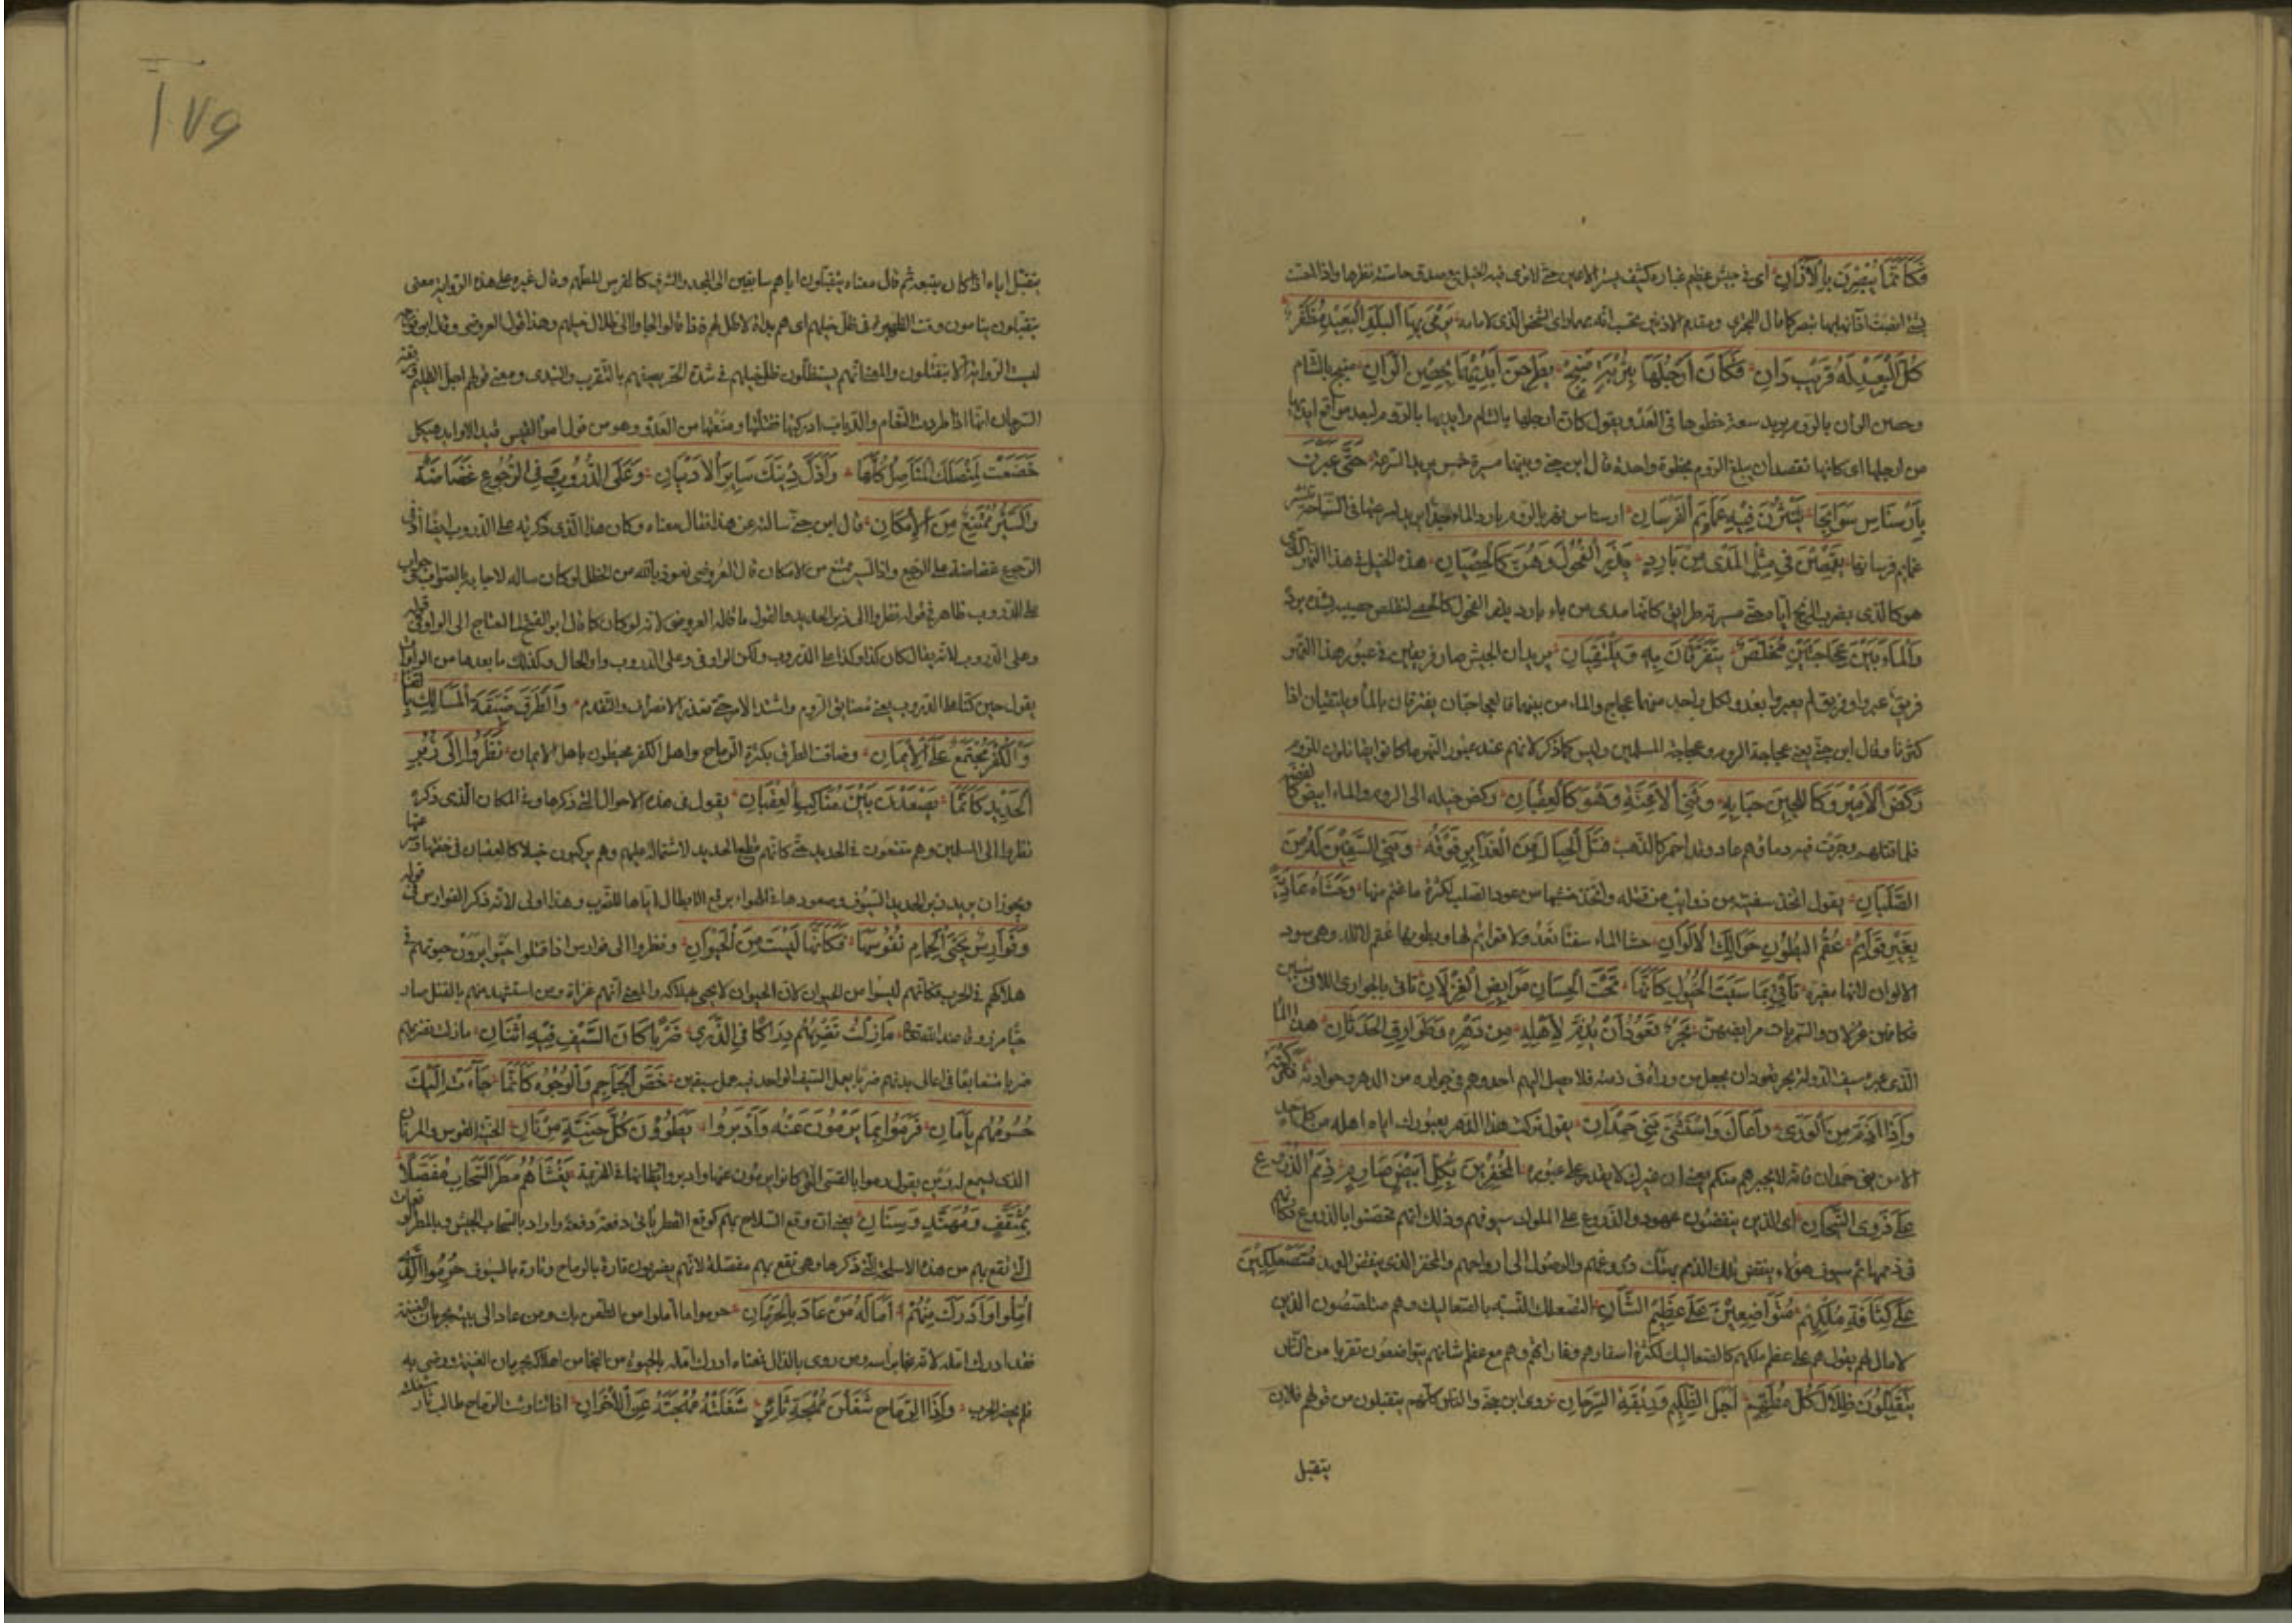 فَكَأَنَّمَا يُبْصِرْنَ بِالْآذَانِ اى فى جيش عظيم غباره كثيف يستر الاعين حتى لا ترى فيه الخيل مع صدق حاسة نظرها واذا احست
بشئ نصبت آذانها كما قال البحترى ومقدم الاذنين تحسب انه بهما راى الشخص الذى لامامه يَرْمِى بِهَا الْبَلَدَ الْبَعِيدَ مُظَفَّرٌ
كُلُّ الْبَعِيدِ لَهُ قَرِيبٌ دَانِ فَكَأَنَّ أَرْجُلَهَا بِتُرْبَةِ مَنْبِجٍ يَطْرَحْنَ أَيْدِيَهَا بِحِصْنِ الرَّانِ منبج بالشام
وحصن الران بالروم يريد سعة خطوها فى العدو يقول كان ارجلها بالشام وايديها بالروم لبعد مواقع ايديها
من ارجلها اى كانها تقصد ان يبلغ الروم بخطوة واحدة قال ابن جنى وبينهما مسيرة خمس يريد السرعة حَتَّى عَبَرْنَ
بِأَرْسَنَاسَ سَوَابِحًا يَنْشُرْنَ فِيهِ عَمَائِمَ الْفُرْسَانِ ارسناس نهر بالروم بارد الماء جدا يريد لسرعتها فى السباحة تنشر
عمايم فرسانها يَقْمُصْنَ فِى مِثْلِ الْمُدَى مِنْ بَارِدٍ يَذَرُ الْفُحُولَ وَهُنَّ كَالْخِصْيَانِ هذه الخيل فى هذا النهر الذى
هو كالمدى يضرب الريح اياه حتى صيرته طرايق كانها مدى من ماء بارد يذر الفحول كالخصى لتقلص خصيه لشدة برده
وَالْمَاءُ بَيْنَ عَجَاجَتَيْنِ مُخَلِّصٌ تَتَفَرَّقَانِ بِهِ وَتَلْتَقِيَانِ يريد ان الجيش صار فريقين فى عبور هذا النهر
فريق عبروا وفريق لم يعبروا بعد ولكل واحد منهما عجاج والماء من بينهما فالعجاجتان يفترقان بالماء ويلتقيان اذا
كثرتا وقال ابن جنى يعنى عجاجة الروم وعجاجة المسلمين وليس كما ذكر لانهم عند عبور النهر ما كانوا يقاتلون الروم
رَكَضَ الْأَمِيرُ وَكَاللُّجَيْنِ حَبَابُهُ وَثَنَى الْأَعِنَّةَ وَهْوَ كَالْعِقْيَانِ ركض خيله الى الروم والماء ابيض كالفضة
فلما قتلهم وجرت فيه دماؤهم عاد وقد احمر كالذهب فَتَلَ الْحِبَالَ مِنَ الْغَدَائِرِ فَوْقَهُ وَبَنَى السَّفِينَ لَهُ مِنَ
الصُّلْبَانِ يقول اتخذ سفينة من ذوايب من قتله واتخذ خشبها من عود الصلب لكثرة ما غنم منها وَحَشَاهُ عَادِيَةً
بِغَيْرِ قَوَائِمٍ عُقُمَ الْبُطُونِ حَوَالِكَ الْأَلْوَانِ حشا الماء سفنا تعدو ولا قوايم لها وبطونها عقم لا تلد وهى سود
الالوان لانها مقيرة تَأْتِى بِمَا سَبَتِ الْخُيُولُ كَأَنَّهَا تَحْتَ الْحِسَانِ مَرَابِضُ الْغِزْلَانِ تاتى بالجوارى اللاتى سبين
فكانهن غزلان والسمريات مرابضهن بَحْرٌ تَعَوَّدَ أَنْ يُذِمَّ لِأَهْلِهِ مِنْ دَهْرِهِ وَطَوَارِقِ الْحَدَثَانِ هذا الماء
الذى عبره سيف الدولة بحر تعود ان يجعل من وراءه فى ذمته فلا يصل اليهم احد وهم فى جواره من الدهر وحوادثه فَتَرَكْتَهُ
وَإِذَا أَذَمَّ مِنَ الْوَرَى رَاعَاكَ وَاسْتَثْنَى بَنِى حَمْدَانِ يقول تركت هذا النهر بعبورك اياه اهله من كل احد
الا من بنى حمدان فانه لا يجيرهم منكم يعنى ان غيرك لا يقدر على عبوره الْمُخْفِرِينَ بِكُلِّ أَبْيَضَ صَارِمٍ ذِمَمَ الدُّرُوعِ
عَلَى ذَوِى التِّيجَانِ اى الذين ينقضون عهود الدروع على الملوك بسيوفهم وذلك انهم تحصنوا بالدروع فكانهم
فى ذممها ثم سيوف هؤلاء ينقض تلك الذمم بهتك دروعهم والوصول الى ارواحهم والمخفر الذى ينقض العهد مُتَصَعْلِكِينَ
عَلَى كَثَافَةِ مُلْكِهِمْ مُتَوَاضِعِينَ عَلَى عَظِيمِ الشَّانِ التصعلك التشبه بالصعاليك وهم متلصصون الذين
لا مال لهم يقول هم على عظم ملكهم كالصعاليك لكثرة اسفارهم وغاراتهم وهم مع عظم شانهم يتواضعون تقربا من الناس
يَتَقَيَّلُونَ ظِلَالَ كُلِّ مُطَهَّمٍ أَجَلِ الظَّلِيمِ وَرِبْقَةِ السِّرْحَانِ روى ابن جنى والناس كلهم يتقيلون من قولهم فلان
يتقيل
١٧٦
يتقيل اباه اذا كان يتبعه ثم قال معناه يتقيلون اباءهم سابقين الى المجد والشرف كالفرس المطهم وقال غيره على هذه الرواية معنى
يتقيلون ينامون وقت الظهيرة فى ظل خيلهم اى هم بداة لا ظل لهم فاذا قالوا لجاوا الى ظلال خيلهم وهذا قول العروضى وقال ابن فورجة
ليست الرواية الا يتفيئون والمعنى انهم يستظلون بظل خيلهم فى شدة الحر يصفهم بالتغرب والتبدى ومعنى قولهم اجل الظليم وربقة
السرحان انها اذا طردت النعام والذياب ادركتها فقتلتها ومنعتها من العدو وهو من قول امرؤ القيس قيد الاوابد هيكل
خَضَعَتْ لِمُنْصُلِكَ الْمَنَاصِلُ كُلُّهَا وَأَذَلَّ دِينُكَ سَائِرَ الْأَدْيَانِ وَعَلَى الدُّرُوبِ وَفِى الرُّجُوعِ غَضَاضَةٌ
وَالسَّيْرُ مُمْتَنِعٌ مِنَ الْإِمْكَانِ قال ابن جنى سالته عن هذا فقال معناه وكان هذا الذى ذكرته على الدروب ايضا اذ فى
الرجوع غضاضة على الراجع واذ السير ممتنع من الامكان قال العروضى نعوذ بالله من الخطل لو كان ساله لاجابه بالصواب جواب
على الدروب ظاهر فى قوله نظروا الى زبر الحديد والقول ما قاله العروضى لانه لو كان كما قال ابو الفتح لما احتاج الى الواو فى قوله
وعلى الدروب لانه يقال كان كذا وكذا على الدروب ولكن الواو فى وعلى الدروب واو الحال وكذلك ما بعدها من الواوات
يقول حين كنا على الدروب يعنى مضايق الروم واشتد الامر حتى تعذر الانصراف والتقدم وَالطُّرْقُ ضَيِّقَةُ الْمَسَالِكِ بِالْقَنَا
وَالْكُفْرُ مُجْتَمِعٌ عَلَى الْإِيمَانِ وضاقت الطرق بكثرة الرماح واهل الكفر محيطون باهل الايمان نَظَرُوا إِلَى زُبَرِ
الْحَدِيدِ كَأَنَّمَا يَصْعَدْنَ بَيْنَ مَنَاكِبِ الْعِقْبَانِ يقول فى هذه الاحوال التى ذكرها وفى المكان الذى ذكره
نظروا الى المسلمين وهم مقنعون فى الحديد حتى كانهم قطع الحديد لاشتماله عليهم وهم يركبون خيلا كالعقبان فى خفتها وسرعتها
ويجوز ان يريد بزبر الحديد السيوف وصعودها فى الهواء برفع الابطال اياها للضرب وهذا اولى لانه ذكر الفوارس فى قوله
وَفَوَارِسٍ يُحْيِى الْحِمَامُ نُفُوسَهَا فَكَأَنَّهَا لَيْسَتْ مِنَ الْحَيَوَانِ ونظروا الى فوارس اذا قتلوا احيوا يرون حيوتهم فى
هلاكهم فى الحرب فكانهم ليسوا من الحيوان لان الحيوان لا يحيى بهلاكه والمعنى انهم غزاة ومن استشهد منهم بالقتل صار
حيا مرزوقا عند الله تعالى مَا زِلْتَ تَضْرِبُهُمْ دِرَاكًا فِى الذُّرَى ضَرْبًا كَأَنَّ السَّيْفَ فِيهِ اثْنَانِ ما زلت تضربهم
ضربا متتابعا فى اعالى بدنهم ضربا يعمل السيف الواحد فيه عمل سيفين خَصَّ الْجَمَاجِمَ وَالْوُجُوهَ كَأَنَّمَا جَاءَتْ إِلَيْكَ
جُسُومُهُمْ بِأَمَانِ فَرَمَوْا بِمَا يَرْمُونَ عَنْهُ وَأَدْبَرُوا يَطَؤُونَ كُلَّ حَنِيَّةٍ مِرْنَانِ الحنية القوس والمرنان
الذى يسمع له رنين يقول رموا بالقسى التى كانوا يرمون عنها وادبروا يطاونها فى الهزيمة يَغْشَاهُمُ مَطَرُ السَّحَابِ مُفَصَّلًا
بِمُثَقَّفٍ وَمُهَنَّدٍ وَسِنَانِ يعنى ان وقع السلاح بهم كوقع القطر ياتى دفعة دفعة واراد بالسحاب الجيش وبالمطر الوقعات
التى تقع بهم من هذه الاسلحة التى ذكرها وهى تقع بهم مفصلة لانهم يضربون تارة بالرماح وتارة بالسيوف حُرِمُوا الَّذِى
أَمَلُوا وَأَدْرَكَ مِنْهُمُ آمَالَهُ مَنْ عَادَ بِالْحِرْمَانِ حرموا ما املوا من الظفر بك ومن عاد الى بيته بحرمان الغنيمة
فقد ادرك امله لانه نجا براسه ومن روى بالذال فمعناه ادرك امله بالحيوة من النجا من اهلاك بحرمان الغنيمة ورضى به
فلم يحضر الحرب وَإِذَا الرِّمَاحُ شَغَلْنَ مُهْجَةَ ثَائِرٍ شَغَلَتْهُ مُهْجَتُهُ عَنِ الْإِخْوَانِ اذا تناوشت الرماح طالب ثار شغلت